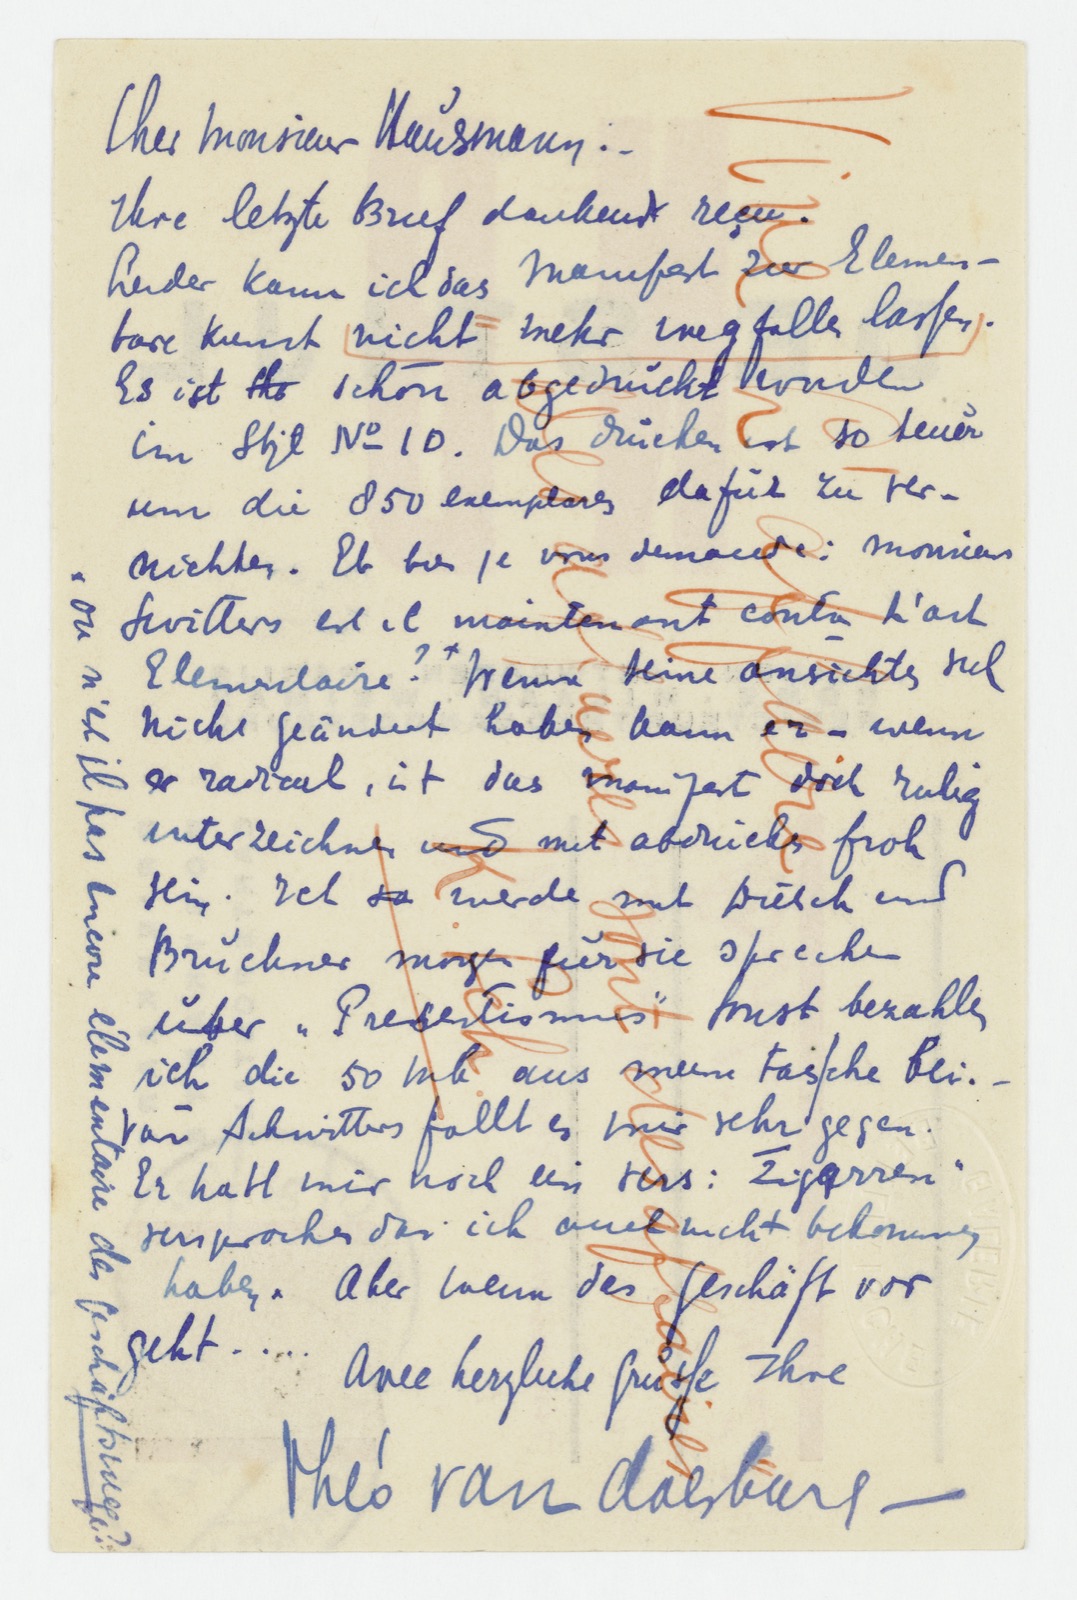 Cher Monsieur Hausmann:-
Ihre letzte Brief dankend reçu.
Leider kann ich das Manifest zur Elemen-
tare Kunst nicht mehr wegfallen lassen.
Es ist schön abgedrückt worden
im Stijl No 10. Das drücken ist so teuer
um die 850 exemplares dafür zu ver-
nichten. Et bien je vous demande: monsieur
Switters est il maintenant contre L'art
Elementaire?* Wenn seine ansichten sich
nicht geändert haben kann er – wenn
er radical ist das manifest doch ruhig
unterzeichnen und mit abdrücken froh
sein. Ich werde mit and
Brückner morgen für sie sprechen
über „Presentismus" Sonst bezahle
ich die 50 mk aus meine Tasche bei.-
Van Schwitters fallt es mir sehr gegen.
Er hatt mir noch ein vers: Zigarren"
versprochen das ich auch nicht bekommen
haben. Aber wenn das Geschäft vor
geht.....
Avec herzliche grüsse Ihre
Théo van Doesburg –
* ou n'est il pas encore élementaire des geschäftswegen?!
Vive
la
sont les affaires